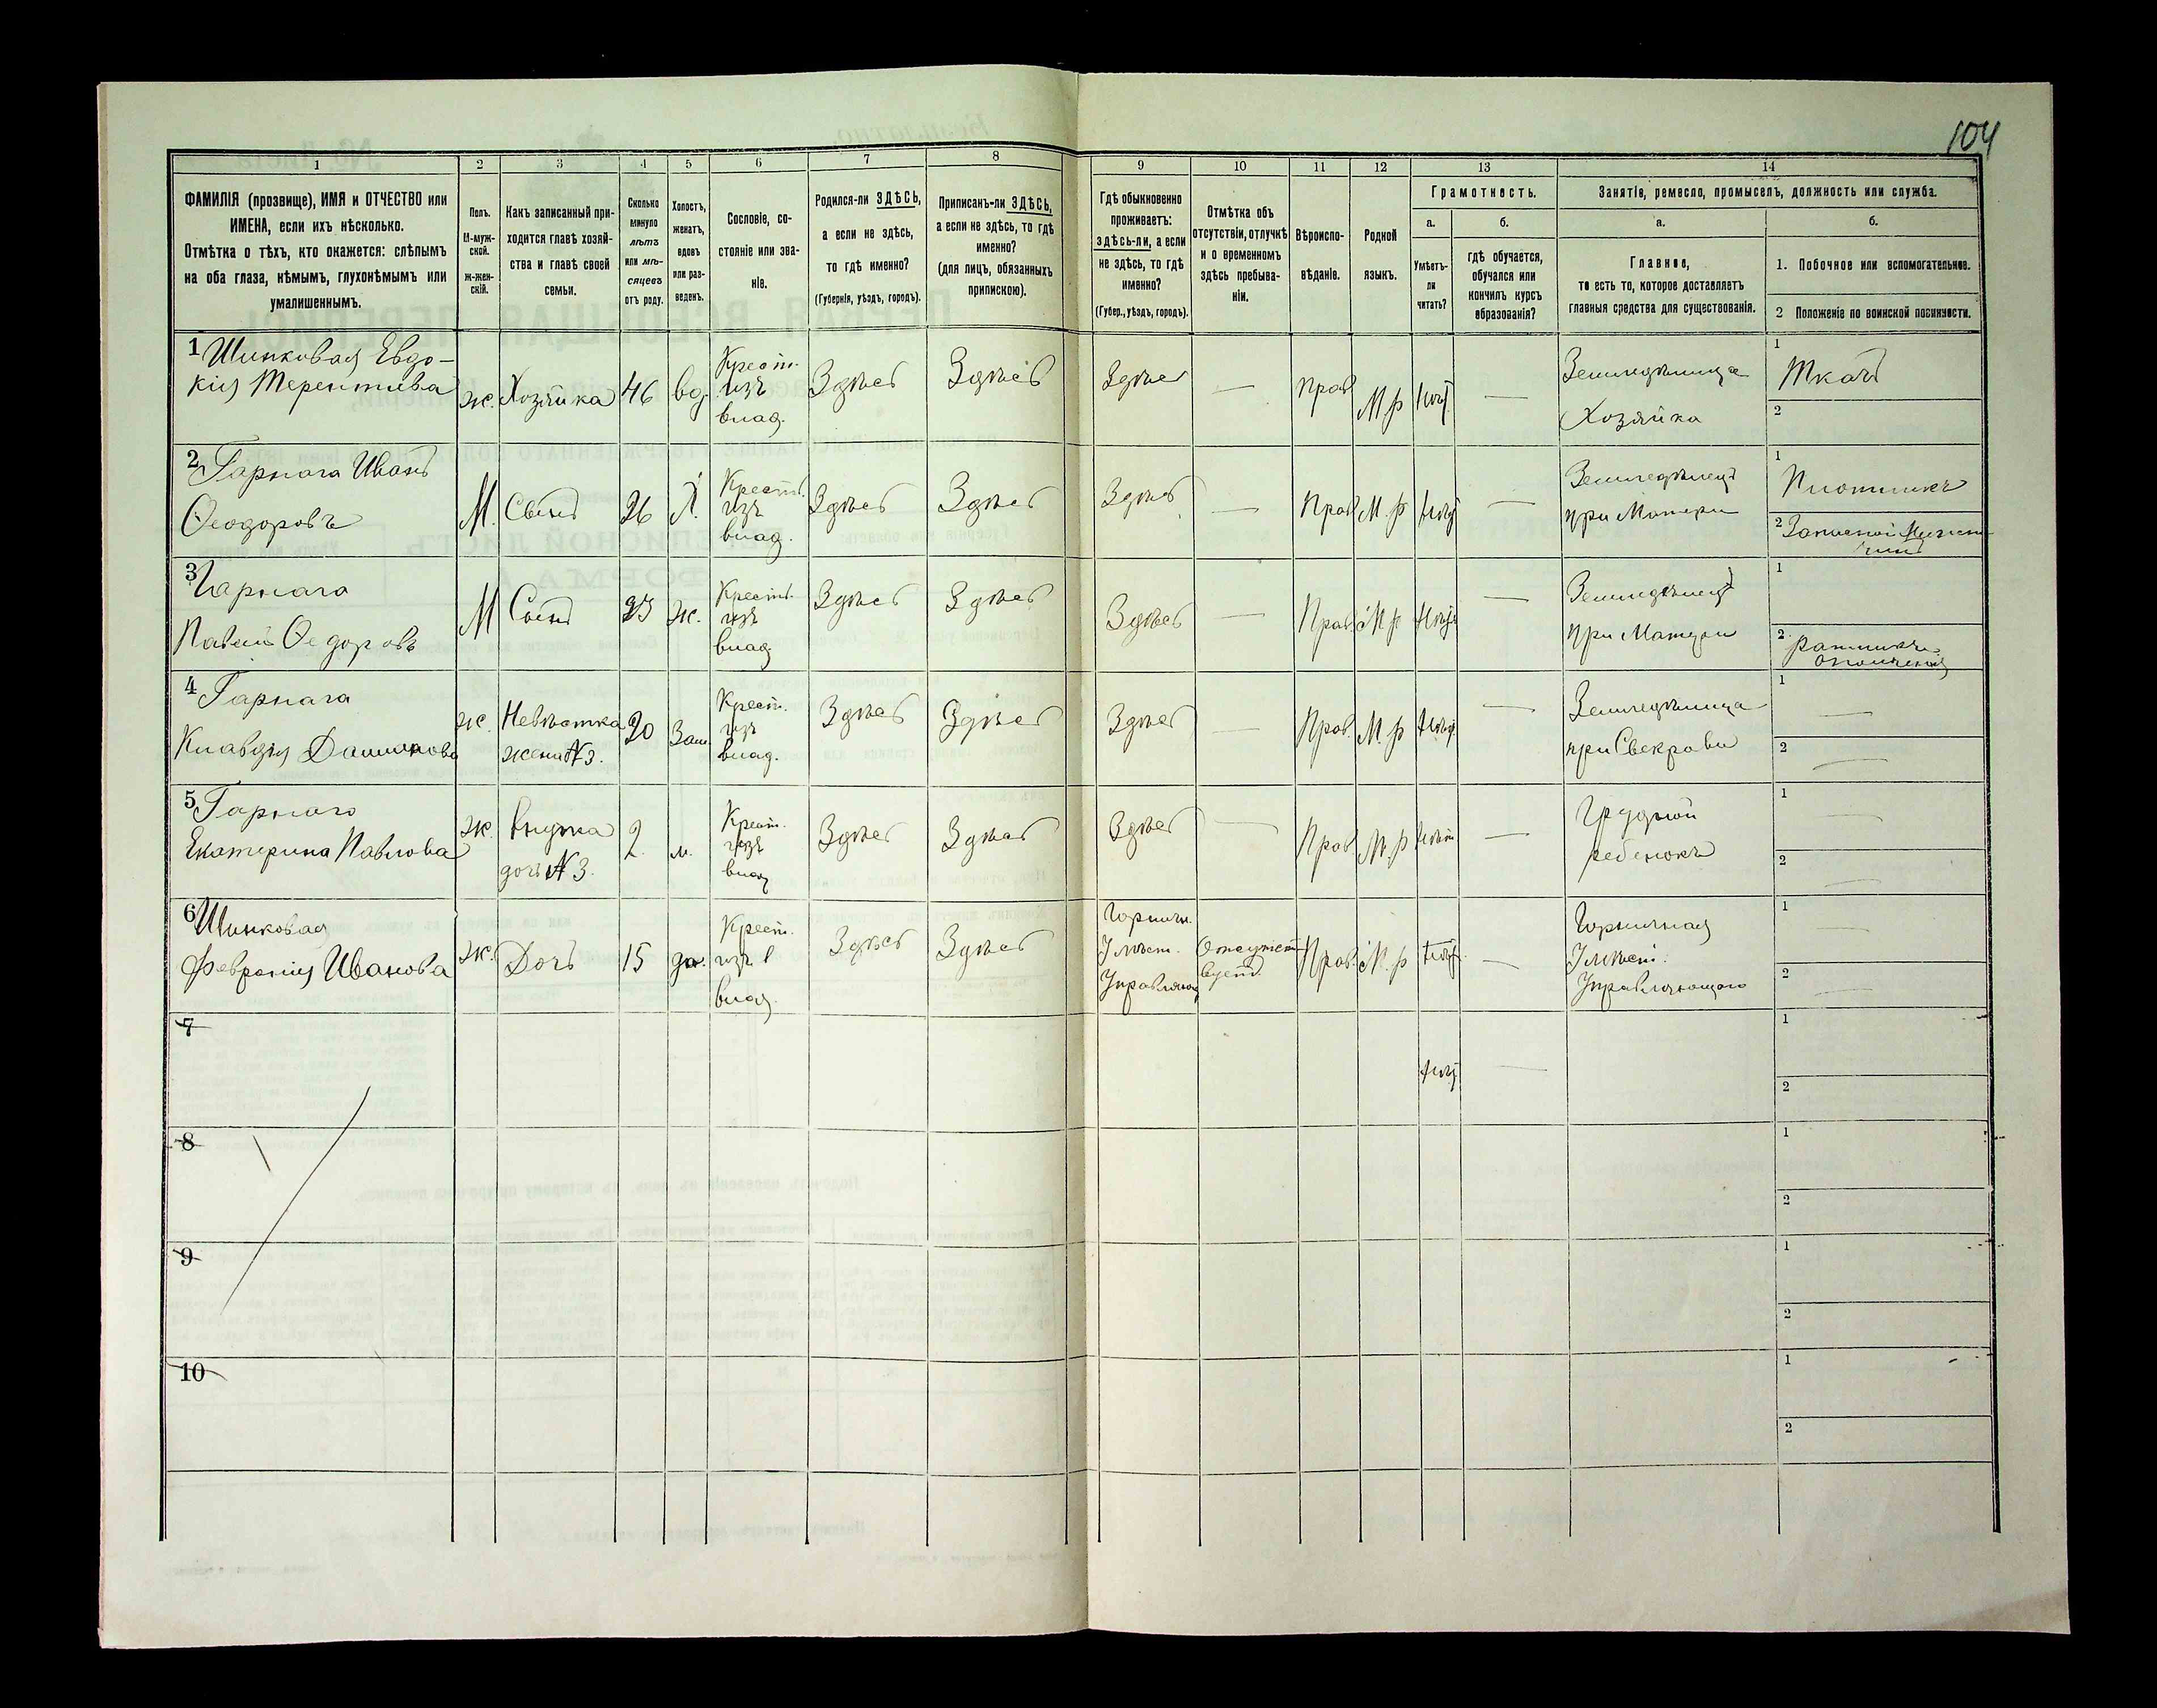 104
1 2 3 4 5 6 7 8 9 10 11 12 13 14
ФАМИЛІЯ (прозвище), ИМЯ и ОТЧЕСТВО или
ИМЕНА, если ихъ нѣсколько.
Отмѣтка о тѣхъ, кто окажется: слѣпымъ
на оба глаза, нѣмымъ, глухонѣмымъ или
умалишеннымъ.
Полъ.
М-муж-
ской.
ж-жен-
скій.
Какъ записанный при-
ходится главѣ хозяй-
ства и главѣ своей
семьи.
Сколько
минуло
лѣтъ
или мѣ-
сяцевъ
отъ роду.
Холостъ,
женатъ,
вдовъ
или раз-
веденъ.
Сословіе, со-
стояніе или зва-
ніе.
Родился-ли ЗДѢСЬ,
а если не здѣсь,
то гдѣ именно?
(Губернія, уѣздъ, городъ).
Приписанъ-ли ЗДѢСЬ,
а если не здѣсь, то гдѣ
именно?
(для лицъ, обязанныхъ
припискою).
Гдѣ обыкновенно
проживаетъ:
здѣсь-ли, а если
не здѣсь, то гдѣ
именно?
(Губер., уѣздъ, городъ).
Отмѣтка объ
отсутствіи, отлучкѣ
и о временномъ
здѣсь пребыва-
ніи.
Вѣроиспо-
вѣданіе.
Родной
языкъ.
Грамотность.
а.
Умѣетъ-
ли
читать?
б.
гдѣ обучается,
обучался или
кончилъ курсъ
образованія?
Занятіе, ремесло, промыселъ, должность или служба.
а.
Главное,
то есть то, которое доставляетъ
главныя средства для существованія.
б.
1. Побочное или вспомогательное.
2 Положеніе по воинской повинности.
1 Шинковая Евдо-
кія Терентиева
ж.
Хозяйка
46
вд.
Крест.
изъ
влад.
Здѣсь
Здѣсь
Здѣсь
—
Прав
М.р
нѣт
—
Земледѣлица
Хозяйка
1
Ткачъ
2
2 Гарнага Иванъ
Ѳеодоровъ
М.
Сынъ
26
Х.
Крест.
изъ
влад.
Здѣсь
Здѣсь
Здѣсь
—
Прав
М.р
нѣт
—
Земледѣлецъ
при Матери
1
Плотникъ
2 Запасной
3 Гарнага
Павелъ Ѳедоровъ
М
Сынъ
23
ж.
Крест.
изъ
влад
Здѣсь
Здѣсь
Здѣсь
—
Прав
М р
нѣт
—
Земледѣлецъ
при Матери
1
2. ратникъ
ополченія
4 Гарнага
Клавдія
ж.
Невѣстка
жена N3.
20
Зам.
Крест.
изъ
влад.
Здѣсь
Здѣсь
Здѣсь
—
Прав.
М.р
нѣт
—
Земледѣлица
при Свекрови
1
—
2
—
5 Гарнаго
Екатерина Павлова
ж.
внучка
дочь N 3.
2.
м.
Крест.
изъ
влад
Здѣсь
Здѣсь
Здѣсь
—
Прав
М.р
нѣт
—
Грудной
ребенокъ
1
—
2
—
6 Шинковая
Февронія Иванова
ж.
Дочь
15
дв.
Крест.
изъ
влад.
Здѣсь
Здѣсь
Горнич.
У мѣст.
Управляющ
Отсутст
вуетъ
Прав.
М.р
нѣт
—
Горничная
У мѣст.
Управляющаго
1
—
2
—
7
нѣт
—
1
2
8
1
2
9
1
2
10
1
2